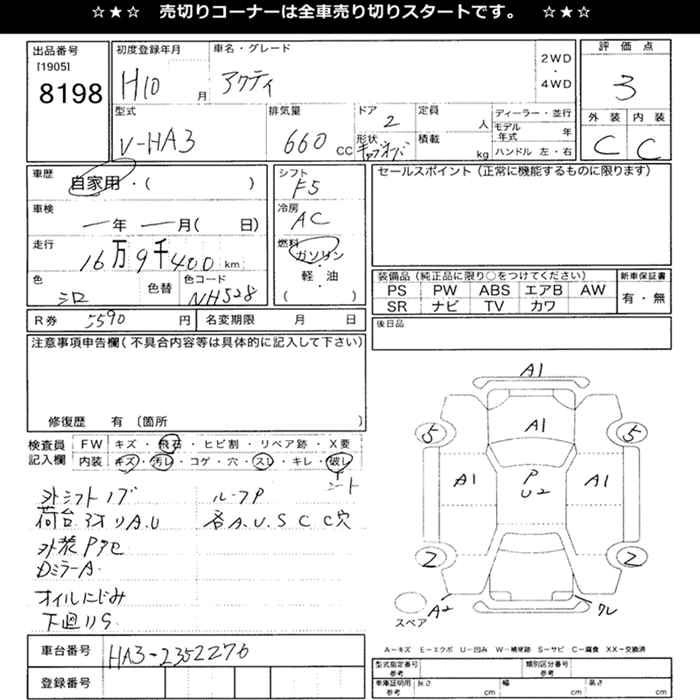 ☆★☆ 売切りコーナーは全車売り切りスタートです。 ☆★☆
出品番号
[1905]
8198
初度登録年月
H10 月
車名・グレード
アクティ
2WD
・
4WD
評価点
3
型式
V-HA3
排気量
660 CC
ドア
2
形状
キャブオーバ
定員
人
積載
kg
ディーラー・並行
モデル年式 年
ハンドル 左・右
外装 内装
C C
車歴
自家用・( )
シフト
F5
セールスポイント (正常に機能するものに限ります)
車検
一年 一月( 日)
冷房
AC
走行
16万9千400km
燃料
ガソリン
・
軽・油
( )
色
シロ
色替
色コード
NH528
装備品 (純正品に限り○をつけてください)
PS PW ABS エアB AW
SR ナビ TV カワ
新車保証書
有・無
R券 5590 円
名変期限 月 日
後日品
注意事項申告欄 (不具合内容等は具体的に記入して下さい)
修復歴 有 〔箇所 〕
検査員
記入欄
FW キズ・飛石・ヒビ割・リペア跡・X要
内装 キズ・汚レ・コゲ・穴・スレ・キレ・破レ
シート
外シフトノブ ルーフP
荷台3オリA.U 各A.U.S C C穴
外装Pアセ
DミラーA
オイルにじみ
下廻りS
A1
A1
5 5
A1 A1
P
U2
2 2
A2
ワレ
スペア
A-キズ E-エクボ U-凹み W-補修跡 S-サビ C-腐食 XX-交換済
車台番号 HA3-2352276
登録番号
型式指定番号 参考
類別区分番号 参考
車庫証明用 参考
長さ cm
幅 cm
高さ cm